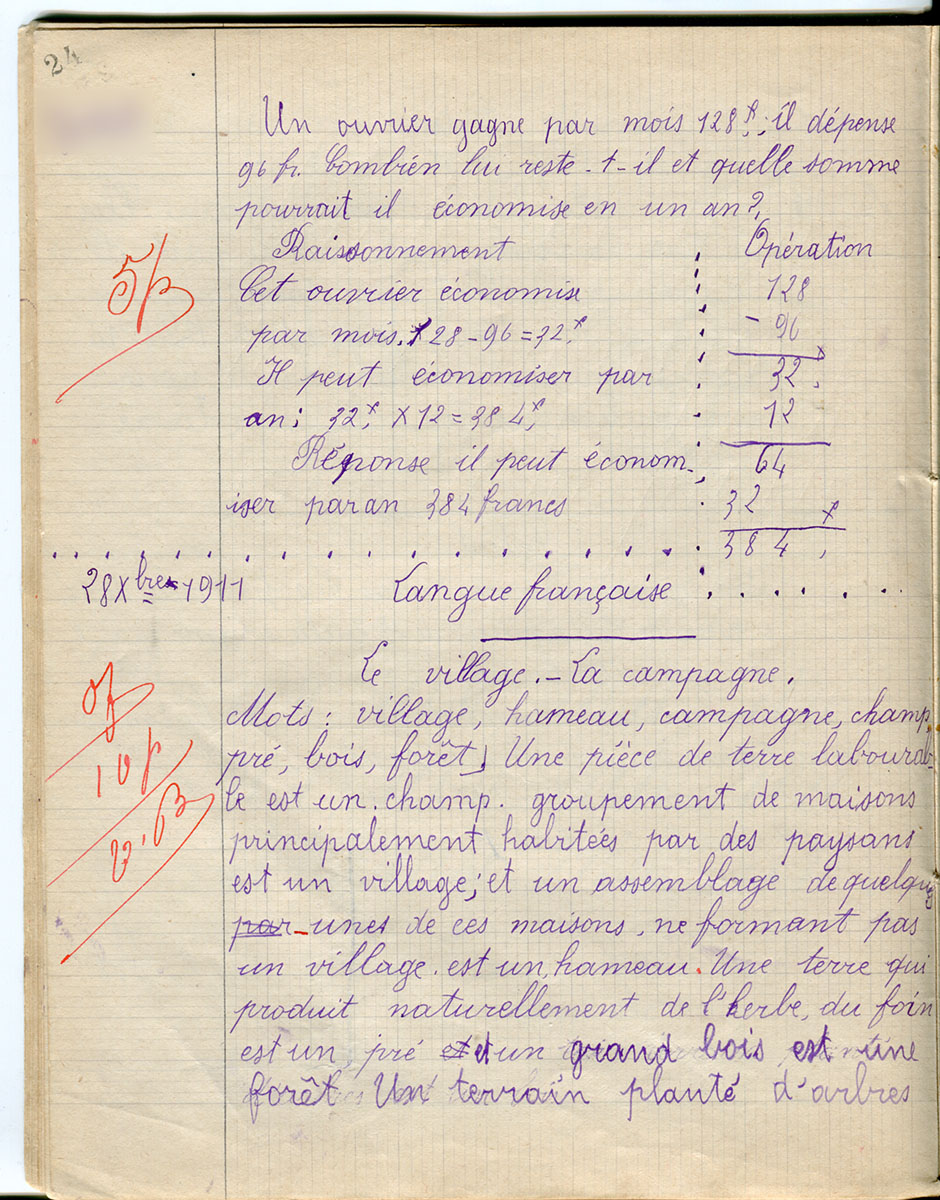 24
Un ouvrier gagne par mois 128f, il dépense
96 fr. Combien lui reste-t-il et quelle somme
pourrait il économise en un an?
Raisonnement
Opération
Cet ouvrier économise
128
par mois. 128 - 96 = 32f
- 96
Il peut économiser par
32f
an; 32f x 12 = 384f
12
Réponse il peut économ-
64
iser par an 384 francs
32
384f
5p
28 Xbre 1911
Langue française
Le village. - La campagne.
Mots: village, hameau, campagne, champ,
pré, bois, forêt. Une pièce de terre laboura-
ble est un champ. groupement de maisons
principalement habitées par des paysans
est un village; et un assemblage de quelqu
par-unes de ces maisons, ne formant pas
un village. est un hameau. Une terre qui
produit naturellement de l'herbe, du foin
est un, pré et et un grand bois est une
forêt Un terrain planté d'arbres
0f
10p